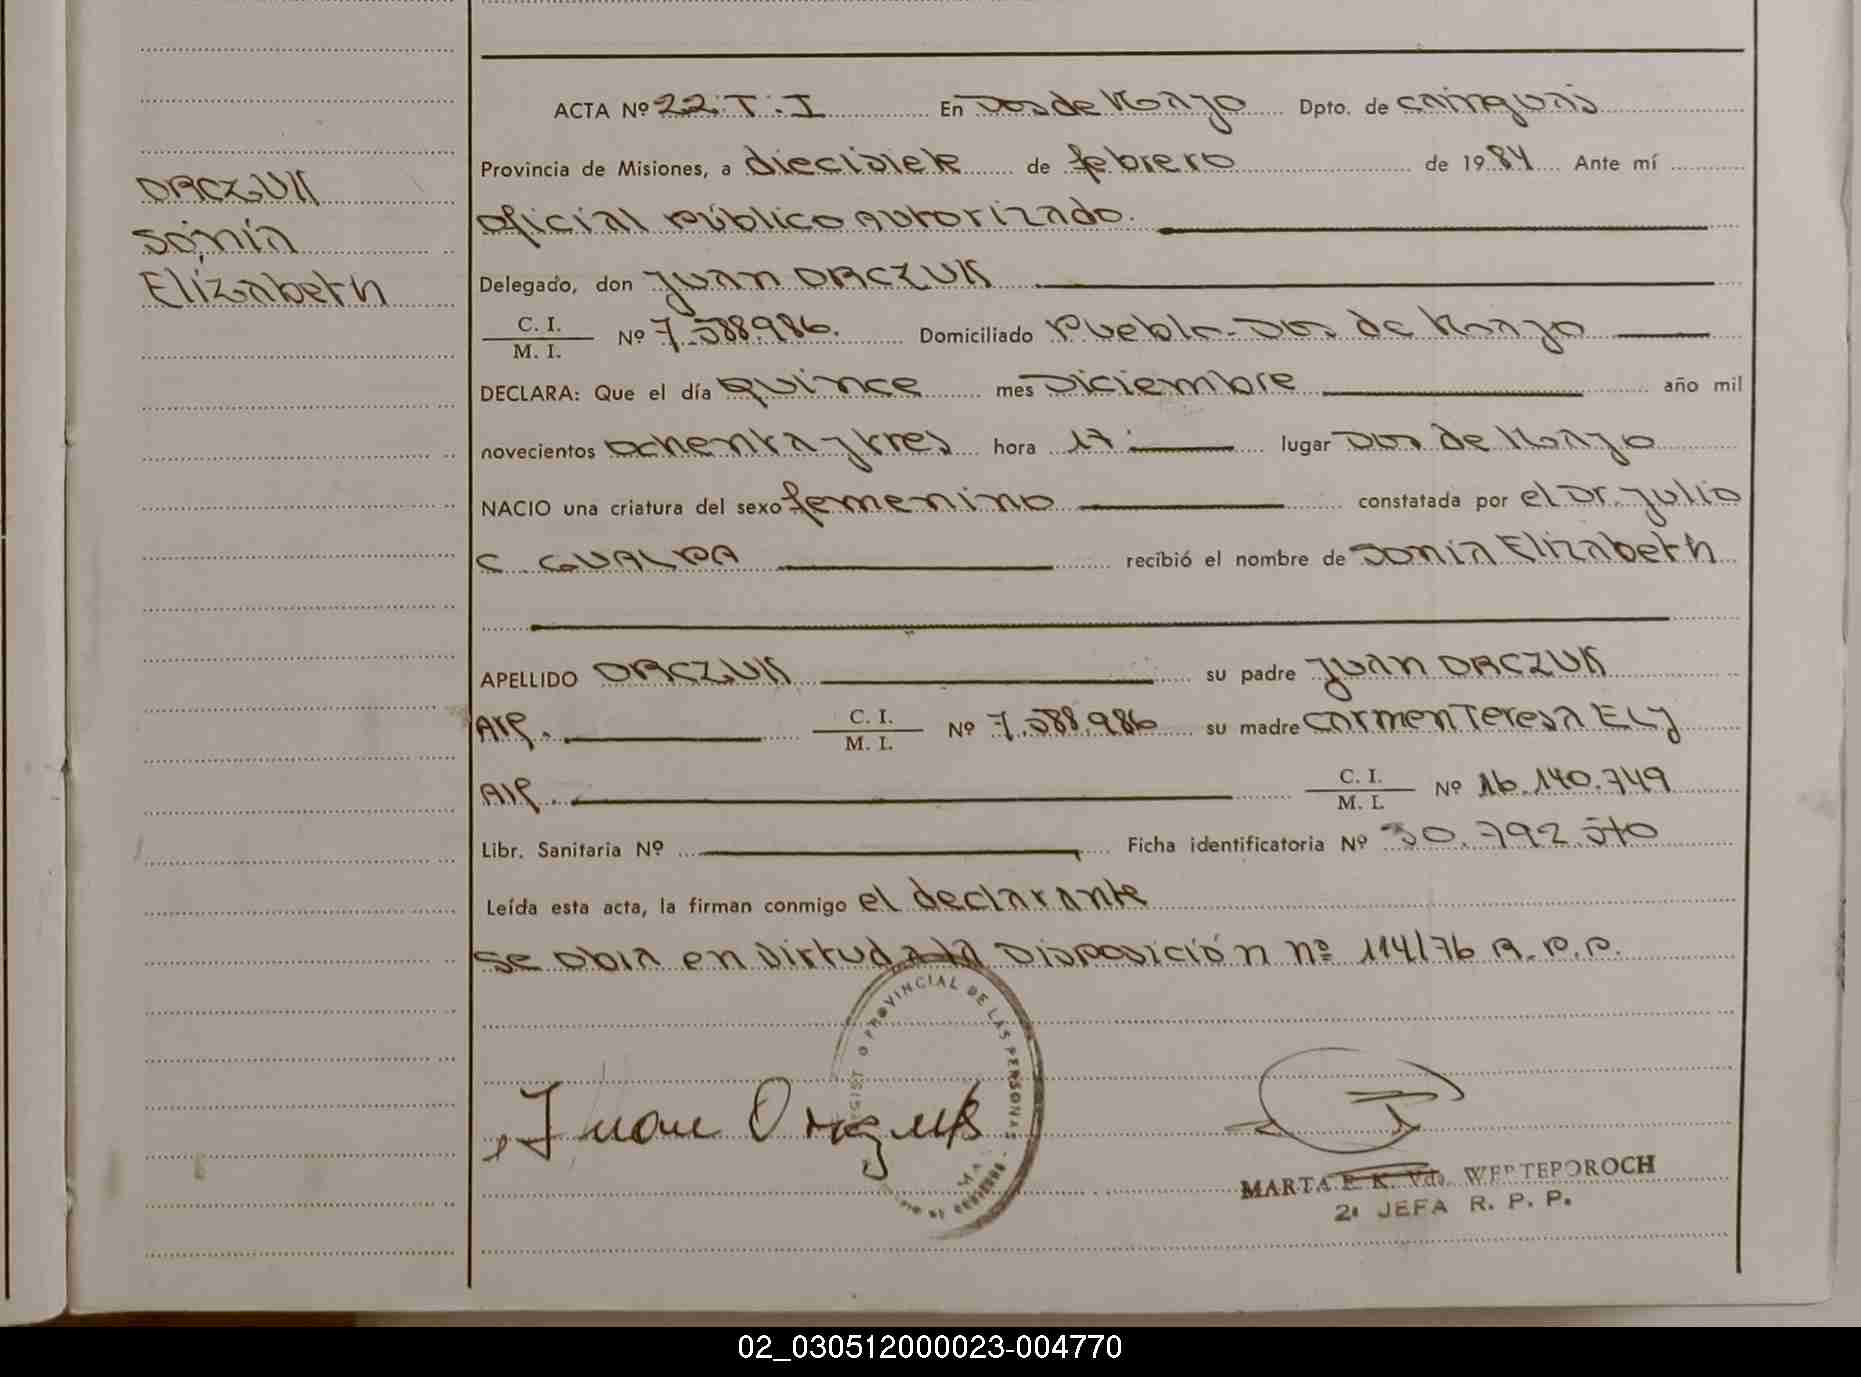 ORCZUK
Sonia
Elizabeth
ACTA Nº 22.T.I En Dos de Mayo Dpto. de Cainguas
Provincia de Misiones, a diecisiete de febrero de 1984 Ante mí
oficial público autorizado.
Delegado, don Juan ORCZUK
C. I.
M. I. Nº 7.588.986. Domiciliado Pueblo-Dos de Mayo
DECLARA: Que el día quince mes Diciembre año mil
novecientos ochenta y tres hora 17. lugar Dos de Mayo
NACIO una criatura del sexo femenino constatada por el Dr. Julio
C. GUALPA recibió el nombre de Sonia Elizabeth
APELLIDO ORCZUK su padre Juan ORCZUK
Arg. C. I.
M. I. Nº 7.588.986 su madre Carmen Teresa ELY
Arg. C. I.
M. I. Nº 16.140.749
Libr. Sanitaria Nº Ficha identificatoria Nº 30.792.570
Leída esta acta, la firman conmigo el declarante
Se obra en virtud a la Disposición nº 114/76 R.P.P.
REGISTRO PROVINCIAL DE LAS PERSONAS
Juan Orczuk
MARTA E. K. Vda. WERTEPOROCH
2ª JEFA R. P. P.
02_030512000023-004770